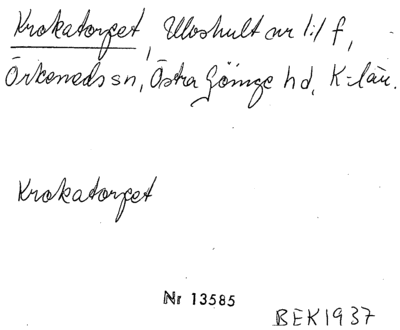 Krokatorpet, Uloshult nr 1:1 f,
Örkeneds sn, Östra Göinge hd, K-län.
Krokatorpet
Nr 13585
BEK1937